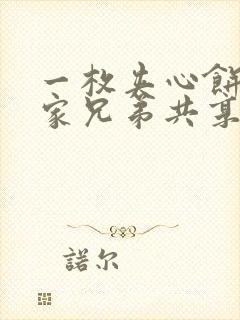 一枚夹心餅
家兄弟共享
諾尔